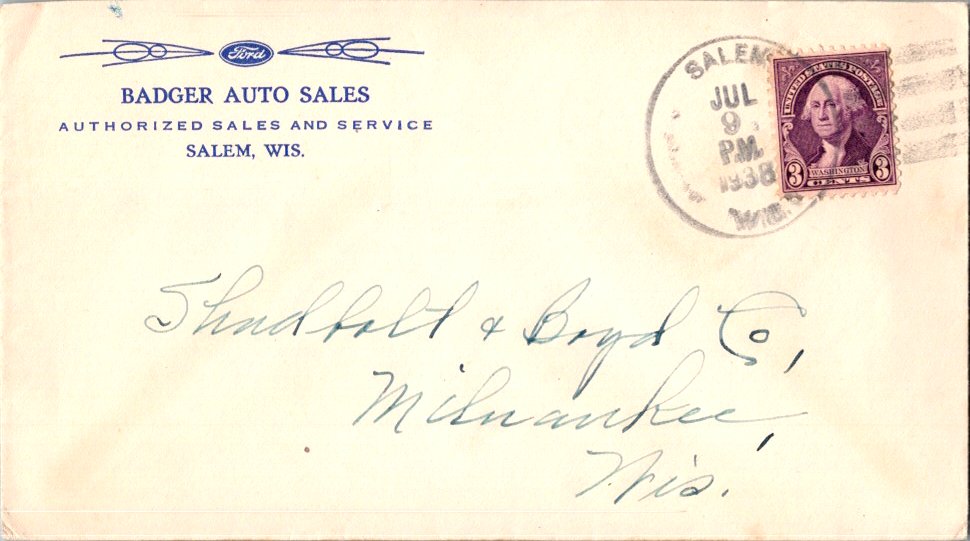 Ford
BADGER AUTO SALES
AUTHORIZED SALES AND SERVICE
SALEM, WIS.
SALEM
JUL
9
P.M.
1938
WIS.
UNITED STATES POSTAGE
3 WASHINGTON 3
CENTS
Shadbolt & Boyd Co,
Milwaukee,
Wis.